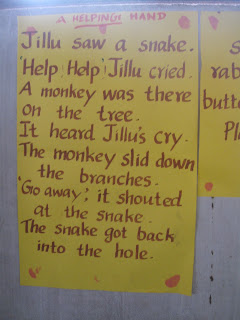 A HELPING HAND
Jillu saw a snake.
'Help Help' Jillu cried.
A monkey was there
on the tree.
It heard Jillu's cry.
The monkey slid down
the branches.
'Go away', it shouted
at the snake.
The snake got back
into the hole.
S
rab
butt
Pl